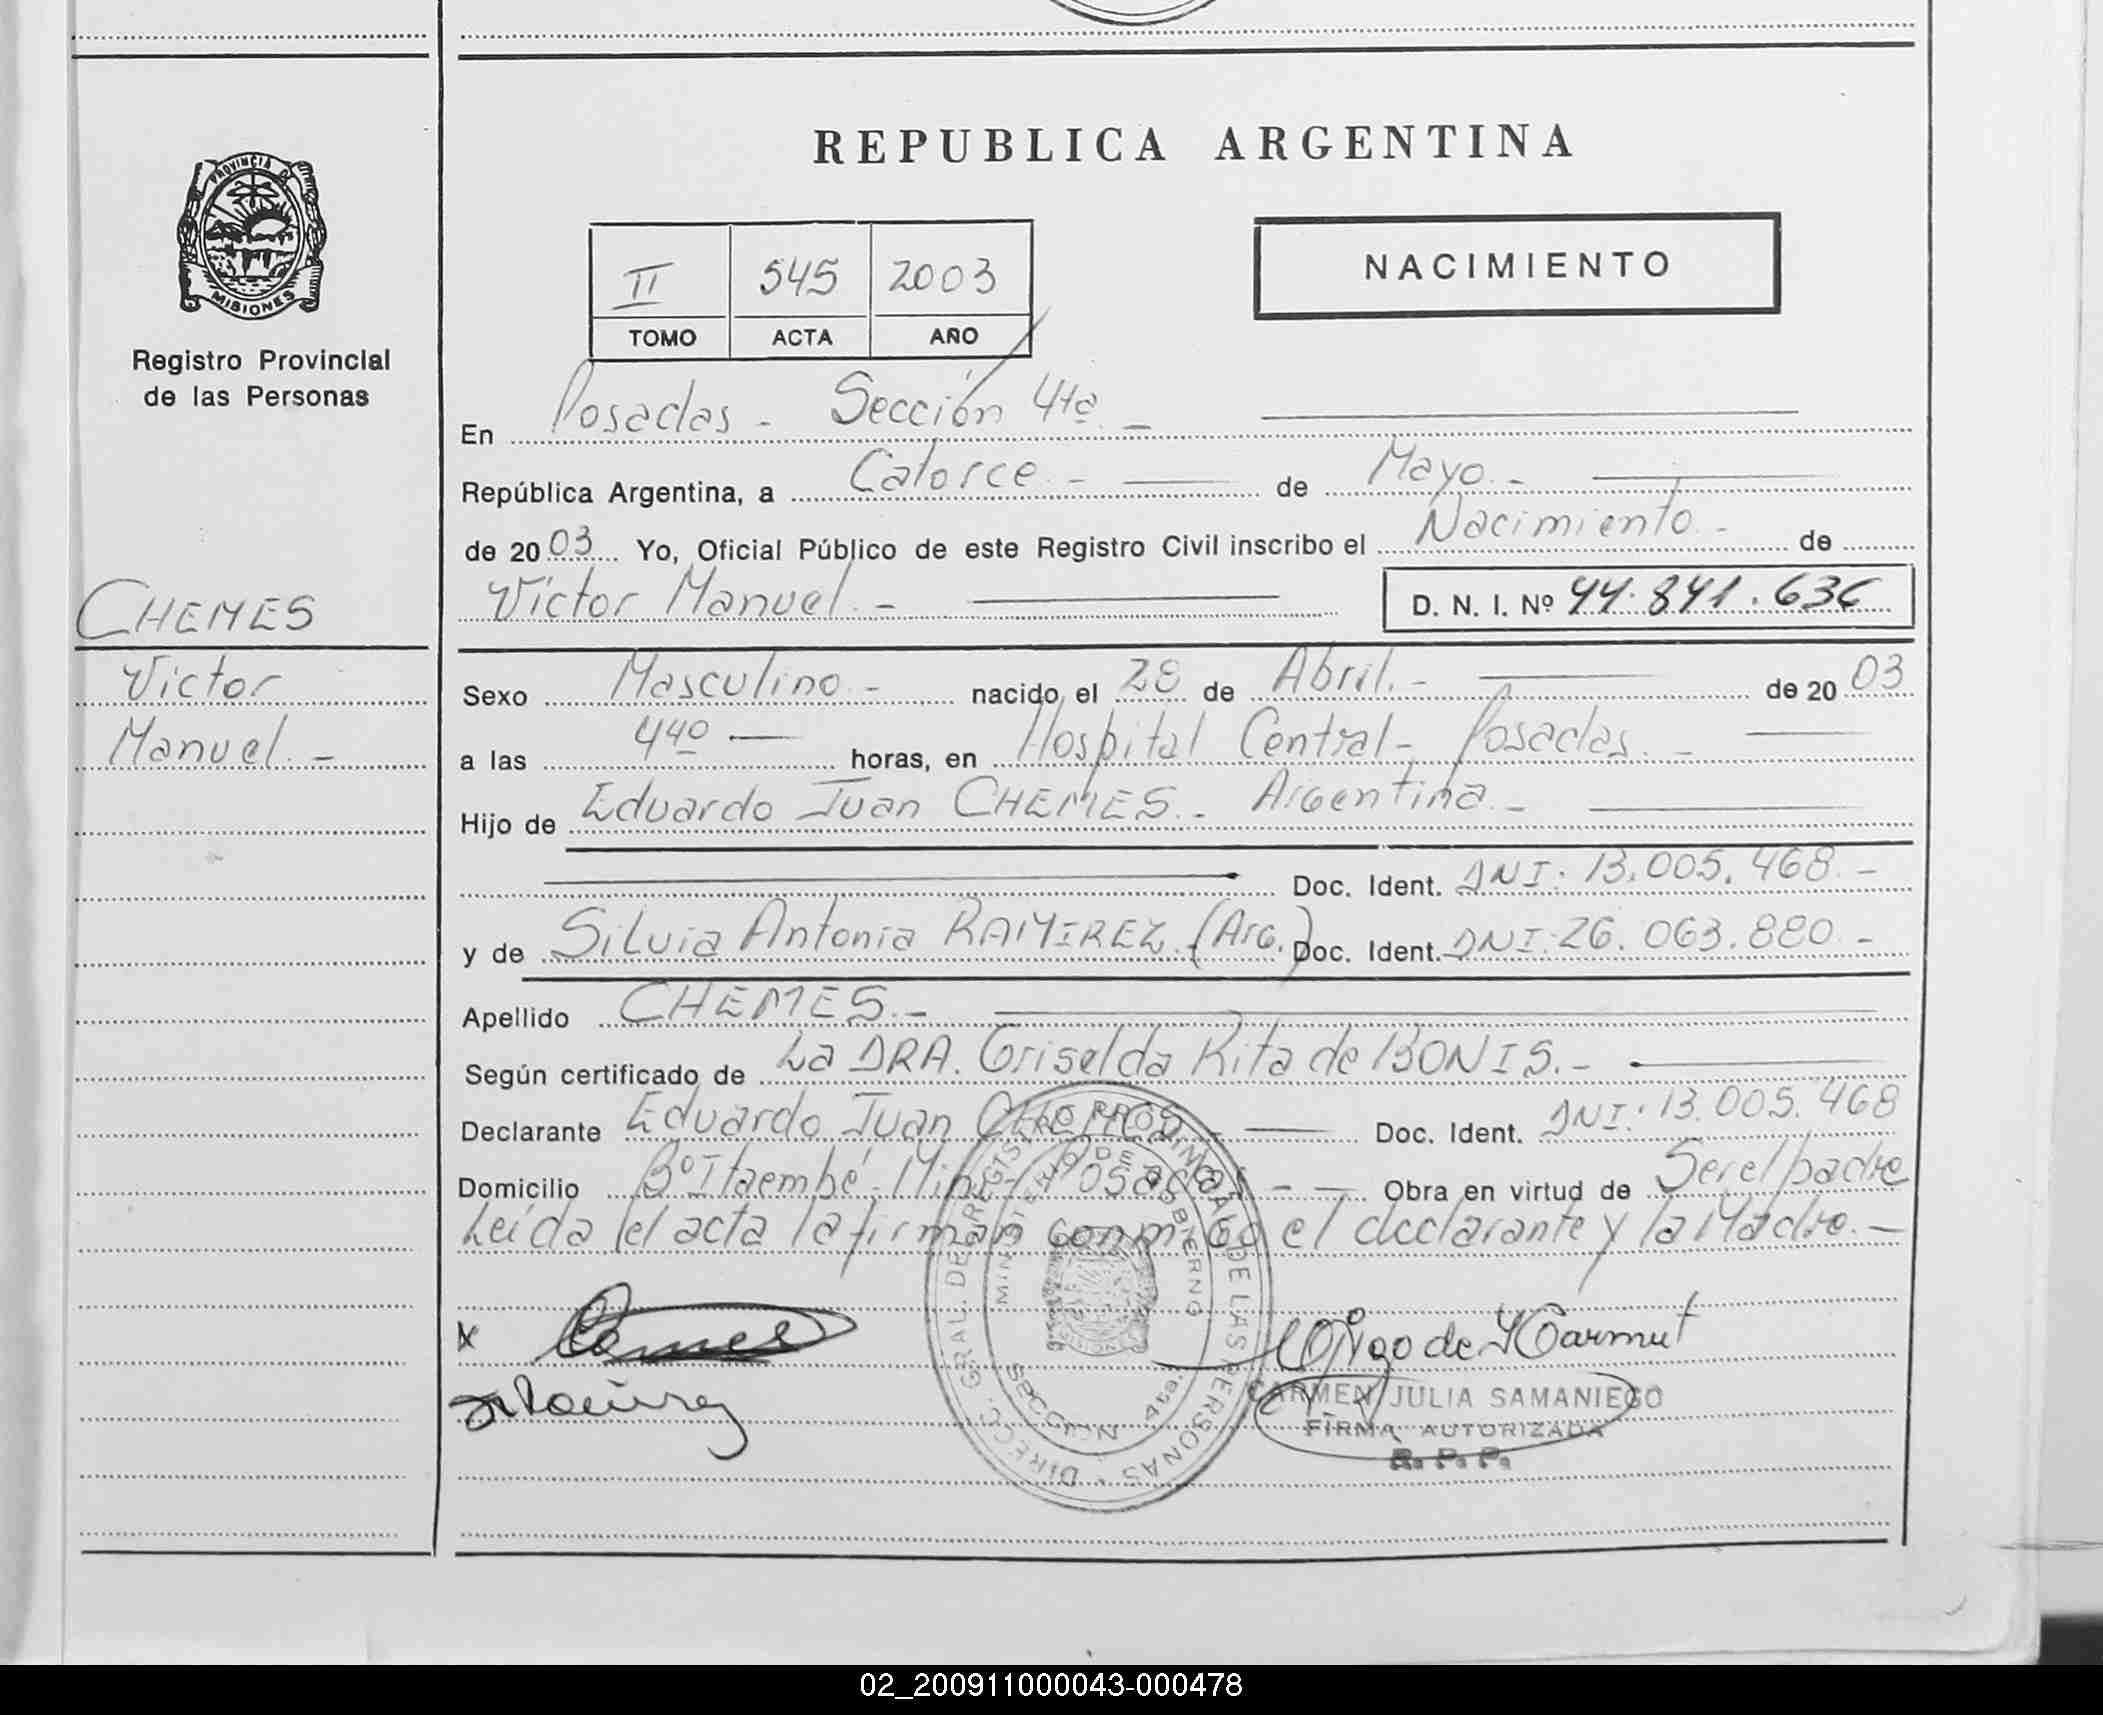 REPUBLICA ARGENTINA
PROVINCIA DE
MISIONES
Registro Provincial
de las Personas
II 545 2003
TOMO ACTA AÑO
NACIMIENTO
En Posadas - Sección 4ta. -
República Argentina, a Catorce - de Mayo. -
de 2003 Yo, Oficial Público de este Registro Civil inscribo el Nacimiento. - de
Víctor Manuel. - D. N. I. Nº 44.841.636
CHEMES
Víctor
Manuel. -
Sexo Masculino - nacido el 28 de Abril. - de 2003
a las 440 horas, en Hospital Central - Posadas. -
Hijo de Eduardo Juan CHEMES. - Argentina. -
Doc. Ident. DNI: 13.005.468. -
y de Silvia Antonia RAMIREZ. (Arg.) Doc. Ident. DNI: 26.063.880 -
Apellido CHEMES. -
Según certificado de La DRA. Griselda Rita de BONIS. -
Declarante Eduardo Juan CHEMES - Doc. Ident. DNI: 13.005.468
Domicilio Bº Itaembé - Miní - Posadas - - Obra en virtud de Ser el padre
Leída el acta la firman conmigo el declarante y la Madre. -
DIRECC. GRAL. DEL REGISTRO PROVINCIAL DE LAS PERSONAS
MINISTERIO DE GOBIERNO
SECCION 4ta.
X
CARMEN JULIA SAMANIEGO
FIRMA AUTORIZADA
R. P. P.
02_200911000043-000478